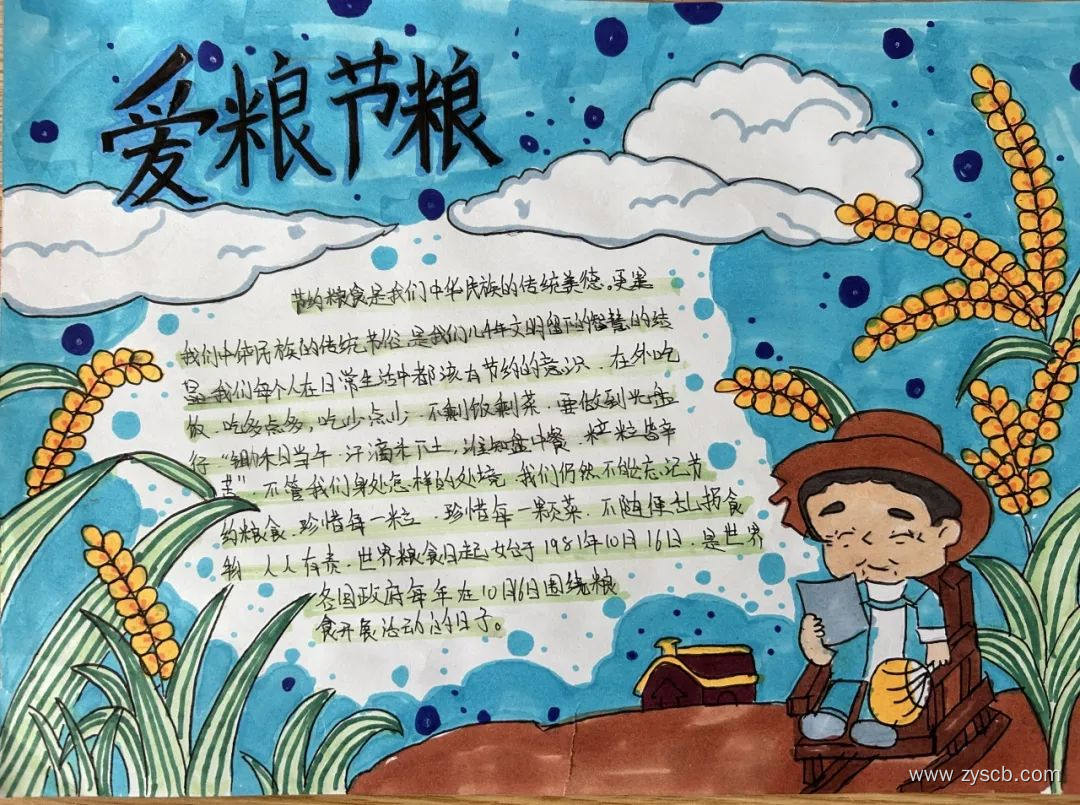 爱粮节粮
节约粮食是我们中华民族的传统美德。更是
我们中华民族的传统节俗,是我们几千年文明留下的智慧的结
晶,我们每个人在日常生活中都该有节约的意识,在外吃
饭,吃多点多,吃少点少,不剩饭剩菜,要做到光盘
行"锄禾日当午,汗滴禾下土,谁知盘中餐,粒粒皆辛
苦",不管我们身处怎样的处境,我们仍然不能忘记节
约粮食,珍惜每一粒,珍惜每一颗菜,不随便乱扔食
物,人人有责,世界粮食日起始于1981年10月16日,是世界
各国政府每年在10月16日围绕粮
食开展活动的日子。
www.zyscb.com